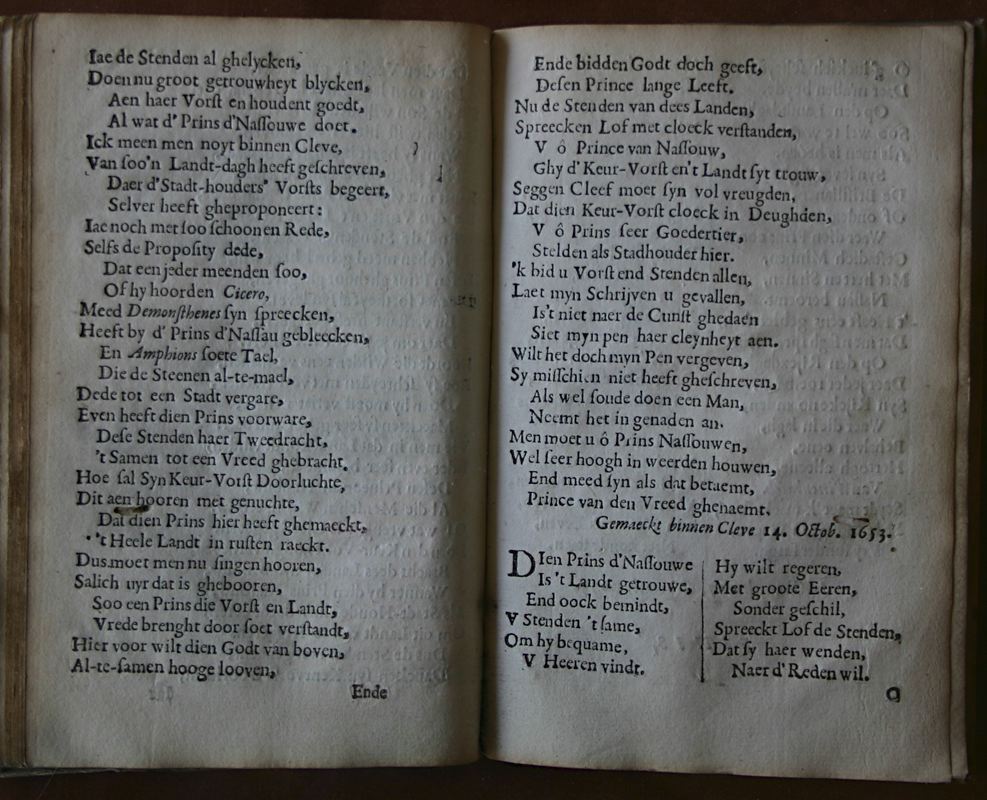 Iae de Stenden al ghelycken,
Doen nu groot getrouwheyt blycken,
Aen haer Vorſt en houdent goedt,
Al wat d' Prins d'Naſſouwe doet.
Ick meen men noyt binnen Cleve,
Van ſoo'n Landt-dagh heeft geſchreven,
Daer d'Stadt-houders' Vorſts begeert,
Selver heeft gheproponeert:
Iae noch met ſoo ſchoonen Rede,
Selfs de Propoſity dede,
Dat een jeder meenden ſoo,
Of hy hoorden Cicero,
Meed Demonſthenes ſyn ſpreecken,
Heeft by d' Prins d'Naſſau gebleecken,
En Amphions ſoete Tael,
Die de Steenen al-te-mael,
Dede tot een Stadt vergare,
Even heeft dien Prins voorware,
Deſe Stenden haer Tweedracht,
't Samen tot een Vreed ghebracht.
Hoe ſal Syn Keur-Vorſt Doorluchte,
Dit aen hooren met genuchte,
Dat dien Prins hier heeft ghemaeckt,
't Heele Landt in ruſten raeckt.
Dus moet men nu ſingen hooren,
Salich uyr dat is ghebooren,
Soo een Prins die Vorſt en Landt,
Vrede brenght door ſoet verſtandt,
Hier voor wilt dien Godt van boven,
Al-te-ſamen hooge looven,
Ende
Ende bidden Godt doch geeft,
Deſen Prince lange Leeft.
Nu de Stenden van dees Landen,
Spreecken Lof met cloeck verſtanden,
V ô Prince van Naſſouw,
Ghy d' Keur-Vorſt en't Landt ſyt trouw,
Seggen Cleef moet ſyn vol vreugden,
Dat dien Keur-Vorſt cloeck in Deughden,
V ô Prins ſeer Goedertier,
Stelden als Stadhouder hier.
'k bid u Vorſt end Stenden allen,
Laet myn Schrijven u gevallen,
Is't niet naer de Cunſt ghedaen
Siet myn pen haer cleynheyt aen.
Wilt het doch myn Pen vergeven,
Sy miſſchien niet heeft gheſchreven,
Als wel ſoude doen een Man,
Neemt het in genaden an.
Men moet u ô Prins Naſſouwen,
Wel ſeer hoogh in weerden houwen,
End meed ſyn als dat betaemt,
Prince van den Vreed ghenaemt.
Gemaeckt binnen Cleve 14. Octob. 1653.
DIen Prins d'Naſſouwe
Is 't Landt getrouwe,
End oock bemindt,
V Stenden 't ſame,
Om hy bequame,
V Heeren vindt.
Hy wilt regeren,
Met groote Eeren,
Sonder geſchil,
Spreeckt Lof de Stenden,
Dat ſy haer wenden,
Naer d' Reden wil.